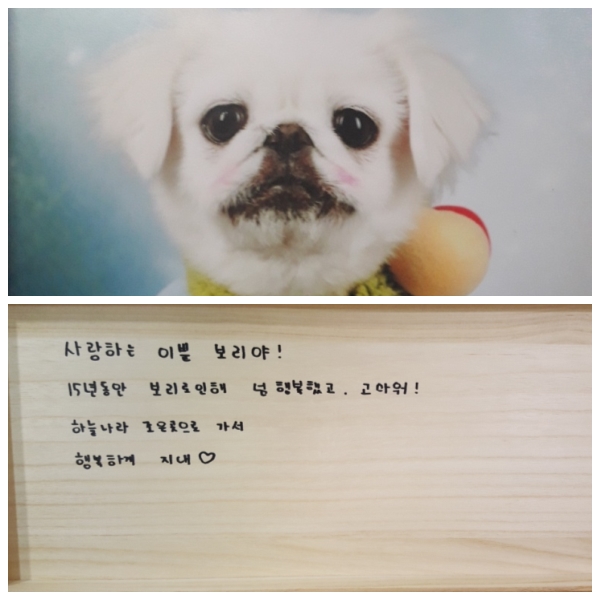 사랑하는 이쁠 보리야!
15년동안 보리로인해 넘 행복했고. 고마워!
하늘나라 좋은곳으로 가서
행복하게 지내♡